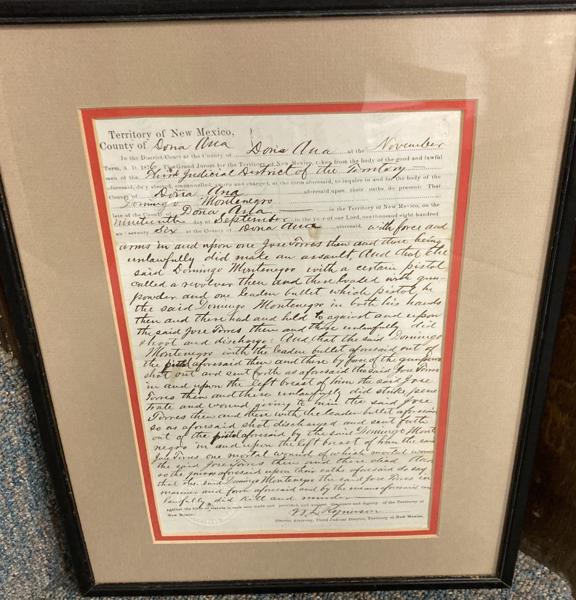 Territory of New Mexico,
County of Dona Ana
In the District Court of the County of Dona Ana at the November
Term, A. D. 1876. The Grand Jurors for the Territory of New Mexico, taken from the body of the good and lawful
men of the Third Judicial District of the Territory
aforesaid, duly elected, empanelled, sworn and charged, at the term aforesaid, to inquire in and for the body of the
County of Doña Ana aforesaid upon their oaths do present: That
Domingo Montenegro
late of the County of Doña Ana in the Territory of New Mexico, on the
nineteenth day of September in the year of our Lord, eighteen hundred
and seventy Six at the County of Dona Ana aforesaid, with force and
arms in and upon one Jose Torres then and there being
unlawfully did make an assault And that the
said Domingo Montenegro with a certain pistol
called a revolver then and there loaded with gun-
powder and one leaden bullet which pistol he
the said Domingo Montenegro in both his hands
then and there had and held to against and upon
the said Jose Torres then and there unlawfully did
shoot and discharge: And that the said Domingo
Montenegro with the leaden bullet aforesaid out of
the pistol aforesaid then and there by force of the gunpowder
shot out and sent forth as aforesaid the said Jose Torres
in and upon the left breast of him the said Jose
Torres then and there unlawfully did strike pene
trate and wound giving to him the said Jose
Torres then and there with the leaden bullet aforesaid
so as aforesaid shot discharged and sent forth
out of the pistol aforesaid by the said Domingo Monte
negro in and upon the left breast of him the said
Jose Torres one mortal wound of which mortal wound
the said Jose Torres then and there died
so the jurors aforesaid upon their oaths aforesaid do say
that the said Domingo Montenegro the said Jose Torres in
manner and form aforesaid and by the means aforesaid un
lawfully did kill and murder
against the form of the statute in such case made and provided, and against the peace and dignity of the Territory of
New Mexico.
W L Rynerson
District Attorney, Third Judicial District, Territory of New Mexico.